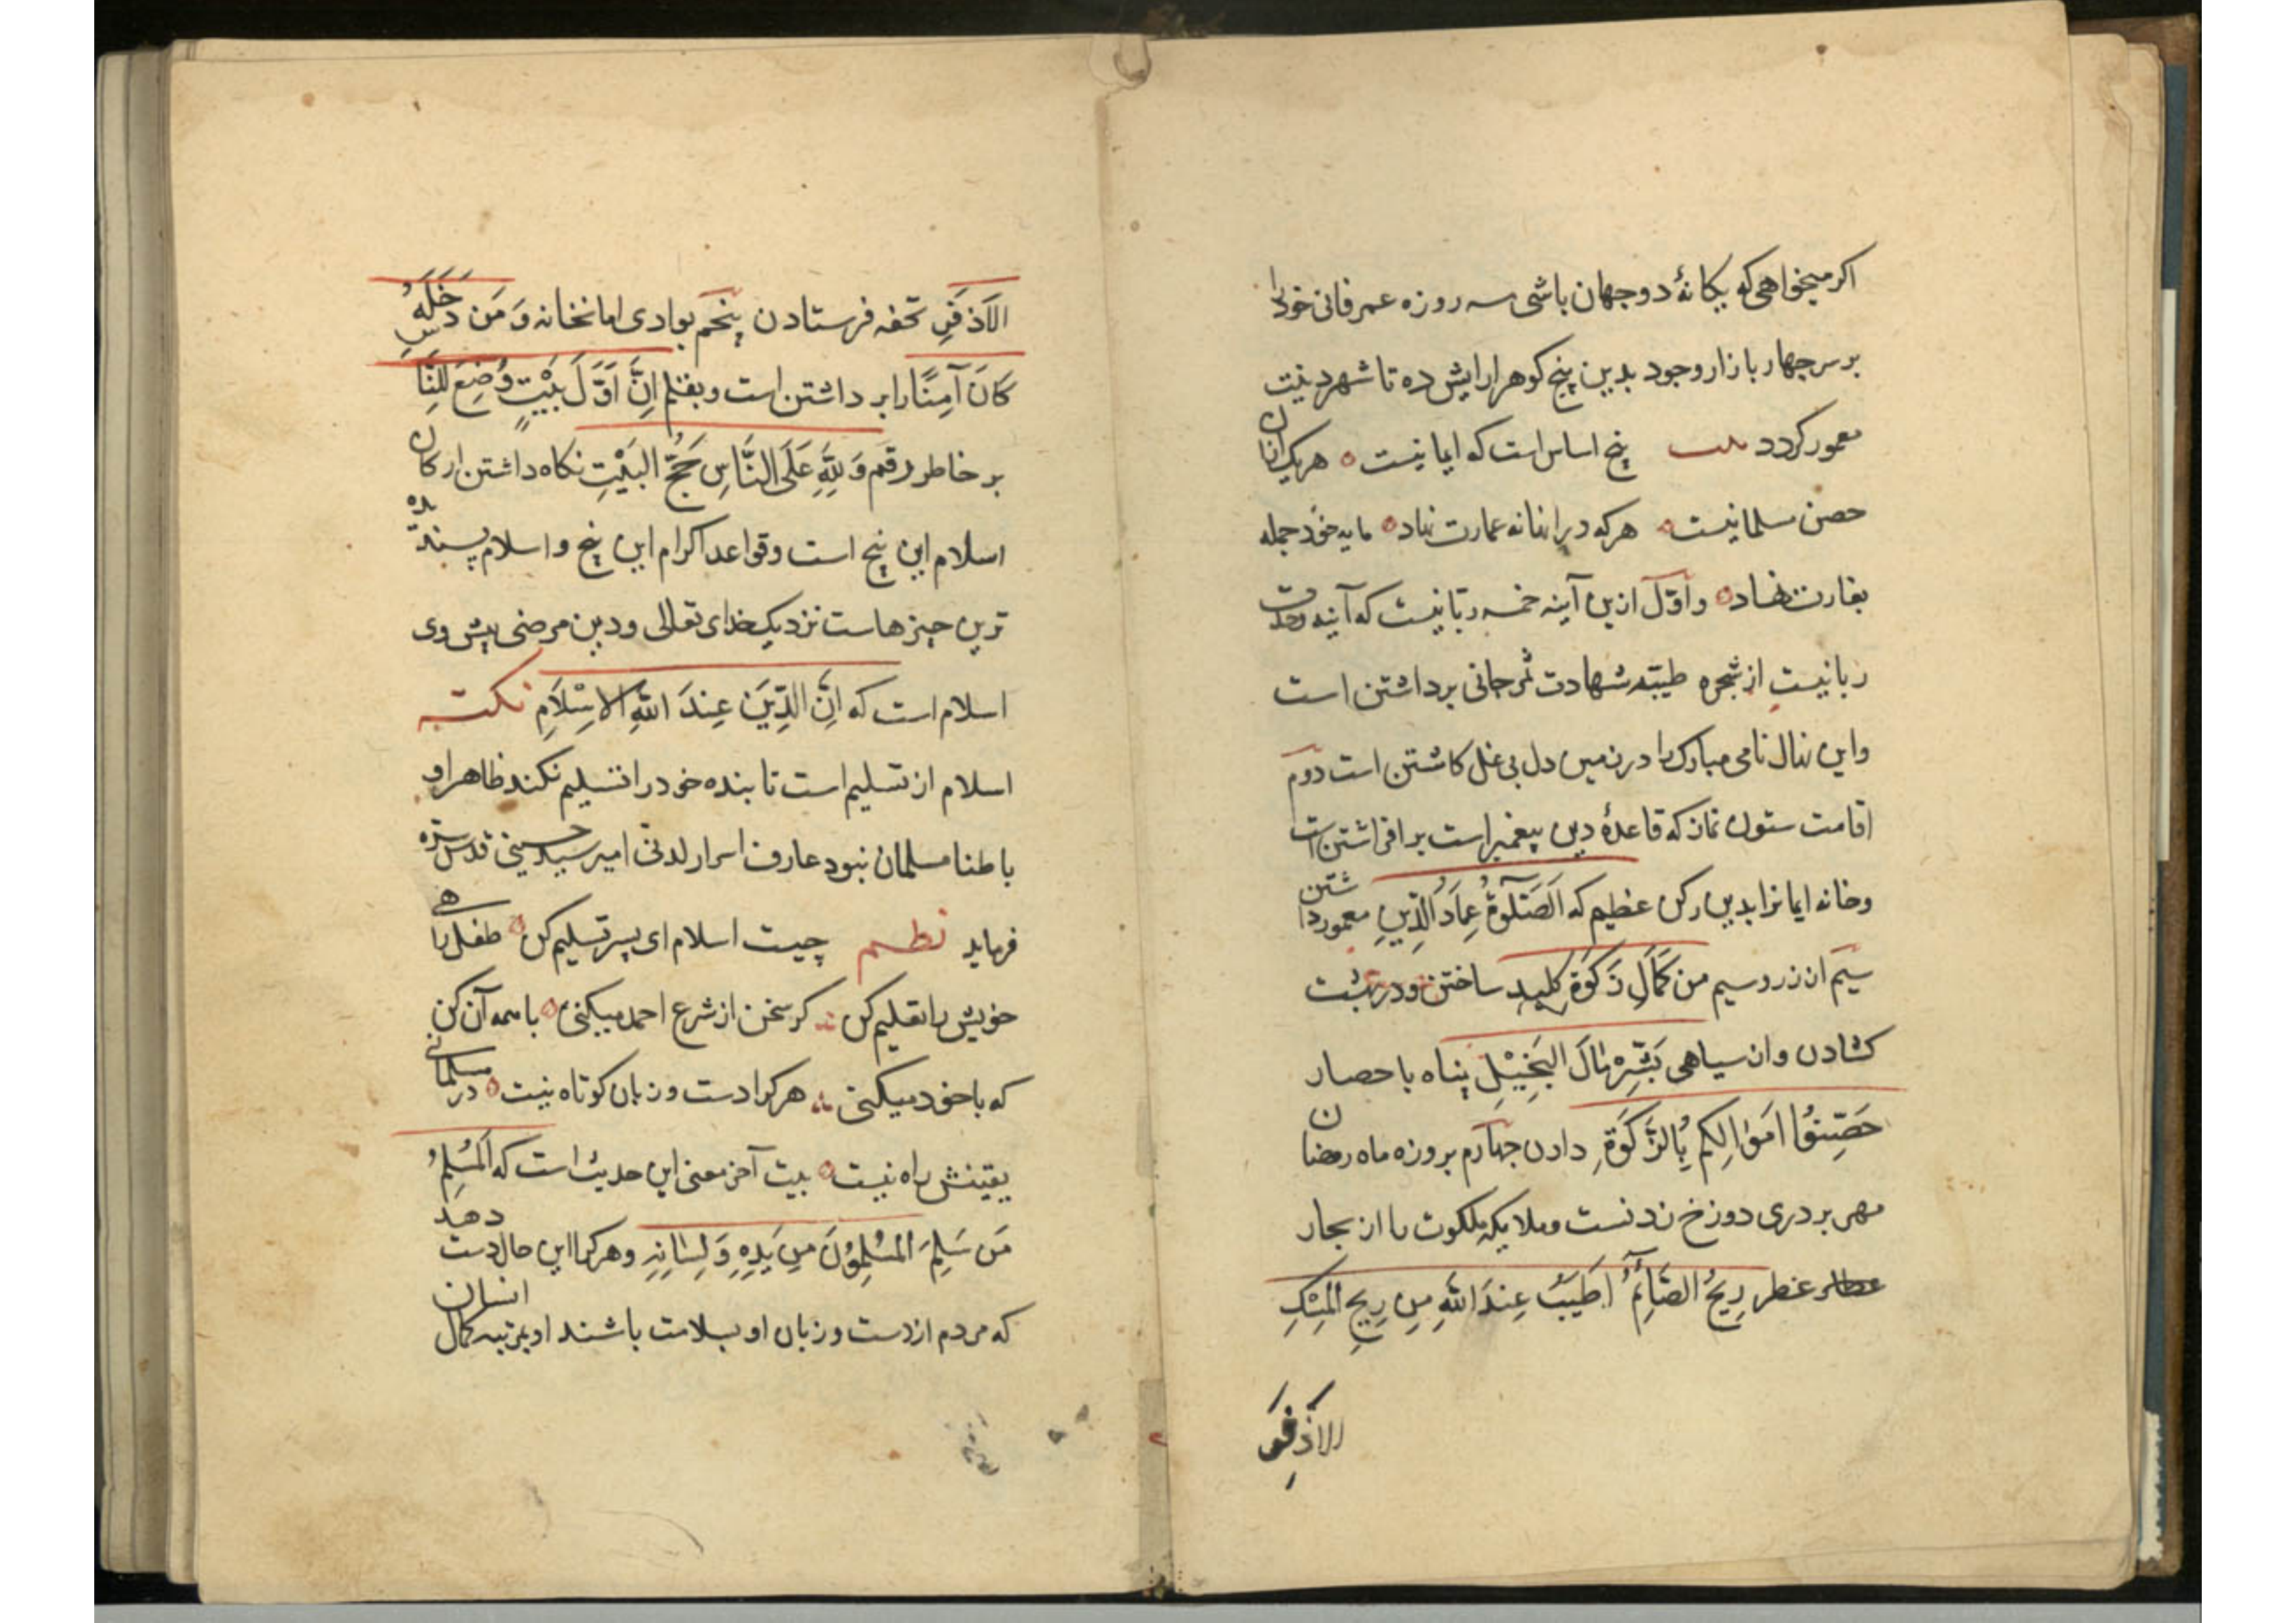 اکر میخواهی که یکانهٔ دو جهان باشی سه روزه عمر فانی خود را
بر سر جهار بازار وجود بدین پنج کوهر ارایش ده تا شهر دینت
معمور کردد بیت پنج اساس است که ایمانیست هر یک ازان
حصن مسلمانیست هر که در این خانه عمارت نهاد مایه خود جمله
بغارت نهاد و اوّل ازین آینه خمسه ربانیست که آینه وحدت
ربانیست از شجره طیّبه شهادت ثمر جانی برداشتن است
و این نهال نامی مبارک را در زمین دل بی غل کاشتن است دوم
اقامت ستون نماز که قاعدهٔ دین پیغمبر است برافراشتن است
و خانه ایمانرا بدین رکن عظیم که اَلصَّلٰوةُ عِمَادُ الدِّینِ معمور داشتن
سیّم از زر و سیم من کَمَالِ زَکٰوةِ کلید ساختن و در بهشت
کشادن و از سیاهی بَشِّرْ مَالَ الْبَخِیْلِ پناه با حصار
حَصِّنُوْا اَمْوٰالِکُم بِالزَّکٰوةِ دادن جهارم بروزه ماه رمضان
مهر بر دری دوزخ زدنست و ملایکه ملکوت را از بخار
عطر رِیحُ الصَّائِمُ اَطْیَبُ عِندَ اللّٰهِ مِن رِیحِ الْمِسْکِ
الاَذفَرِ
الاَذفَرِ تحفه فرستادن پنجم بوادی امانخانه وَ مَن دَخَلَهُ
کَانَ آمِنًا را برداشتن است و بقلم اِنَّ اَوَّلَ بَیْتٍ وُضِعَ لِلنَّاسِ
بر خاطر رقم وَ لِلّٰهِ عَلَی النَّاسِ حَجُّ البَیْتِ نکاه داشتن ارکان
اسلام این پنج است و قواعد اکرام این پنج و اسلام پسندیده
ترین چیزهاست نزدیک خدای تعالی و دین مرضی پیش وی
اسلام است که اِنَّ الدِّینَ عِندَ اللّٰهِ الاِسْلَامِ نکته
اسلام از تسلیم است تا بنده خود را تسلیم نکند ظاهرا و
باطنا مسلمان نبود عارف اسرار لدنی امیر سید حسینی قدس سره
فرماید نظم چیست اسلام ای پسر تسلیم کن طفل راهی
خویش را تعلیم کن کر سخن از شرع احمد میکنی با همه آن کن
که با خود میکنی هر کرا دست و زبان کوتاه نیست در مسلمانی
یقینش راه نیست بیت آخر معنی این حدیث است که اَلْمُسْلِمُ
مَن سَلِمَ المُسْلِمُوْنَ مِن یَدِهِ وَ لِسَانِهِ و هر کرا این حال دست دهد
که مردم از دست و زبان او بسلامت باشند او بمرتبه کمال انسان